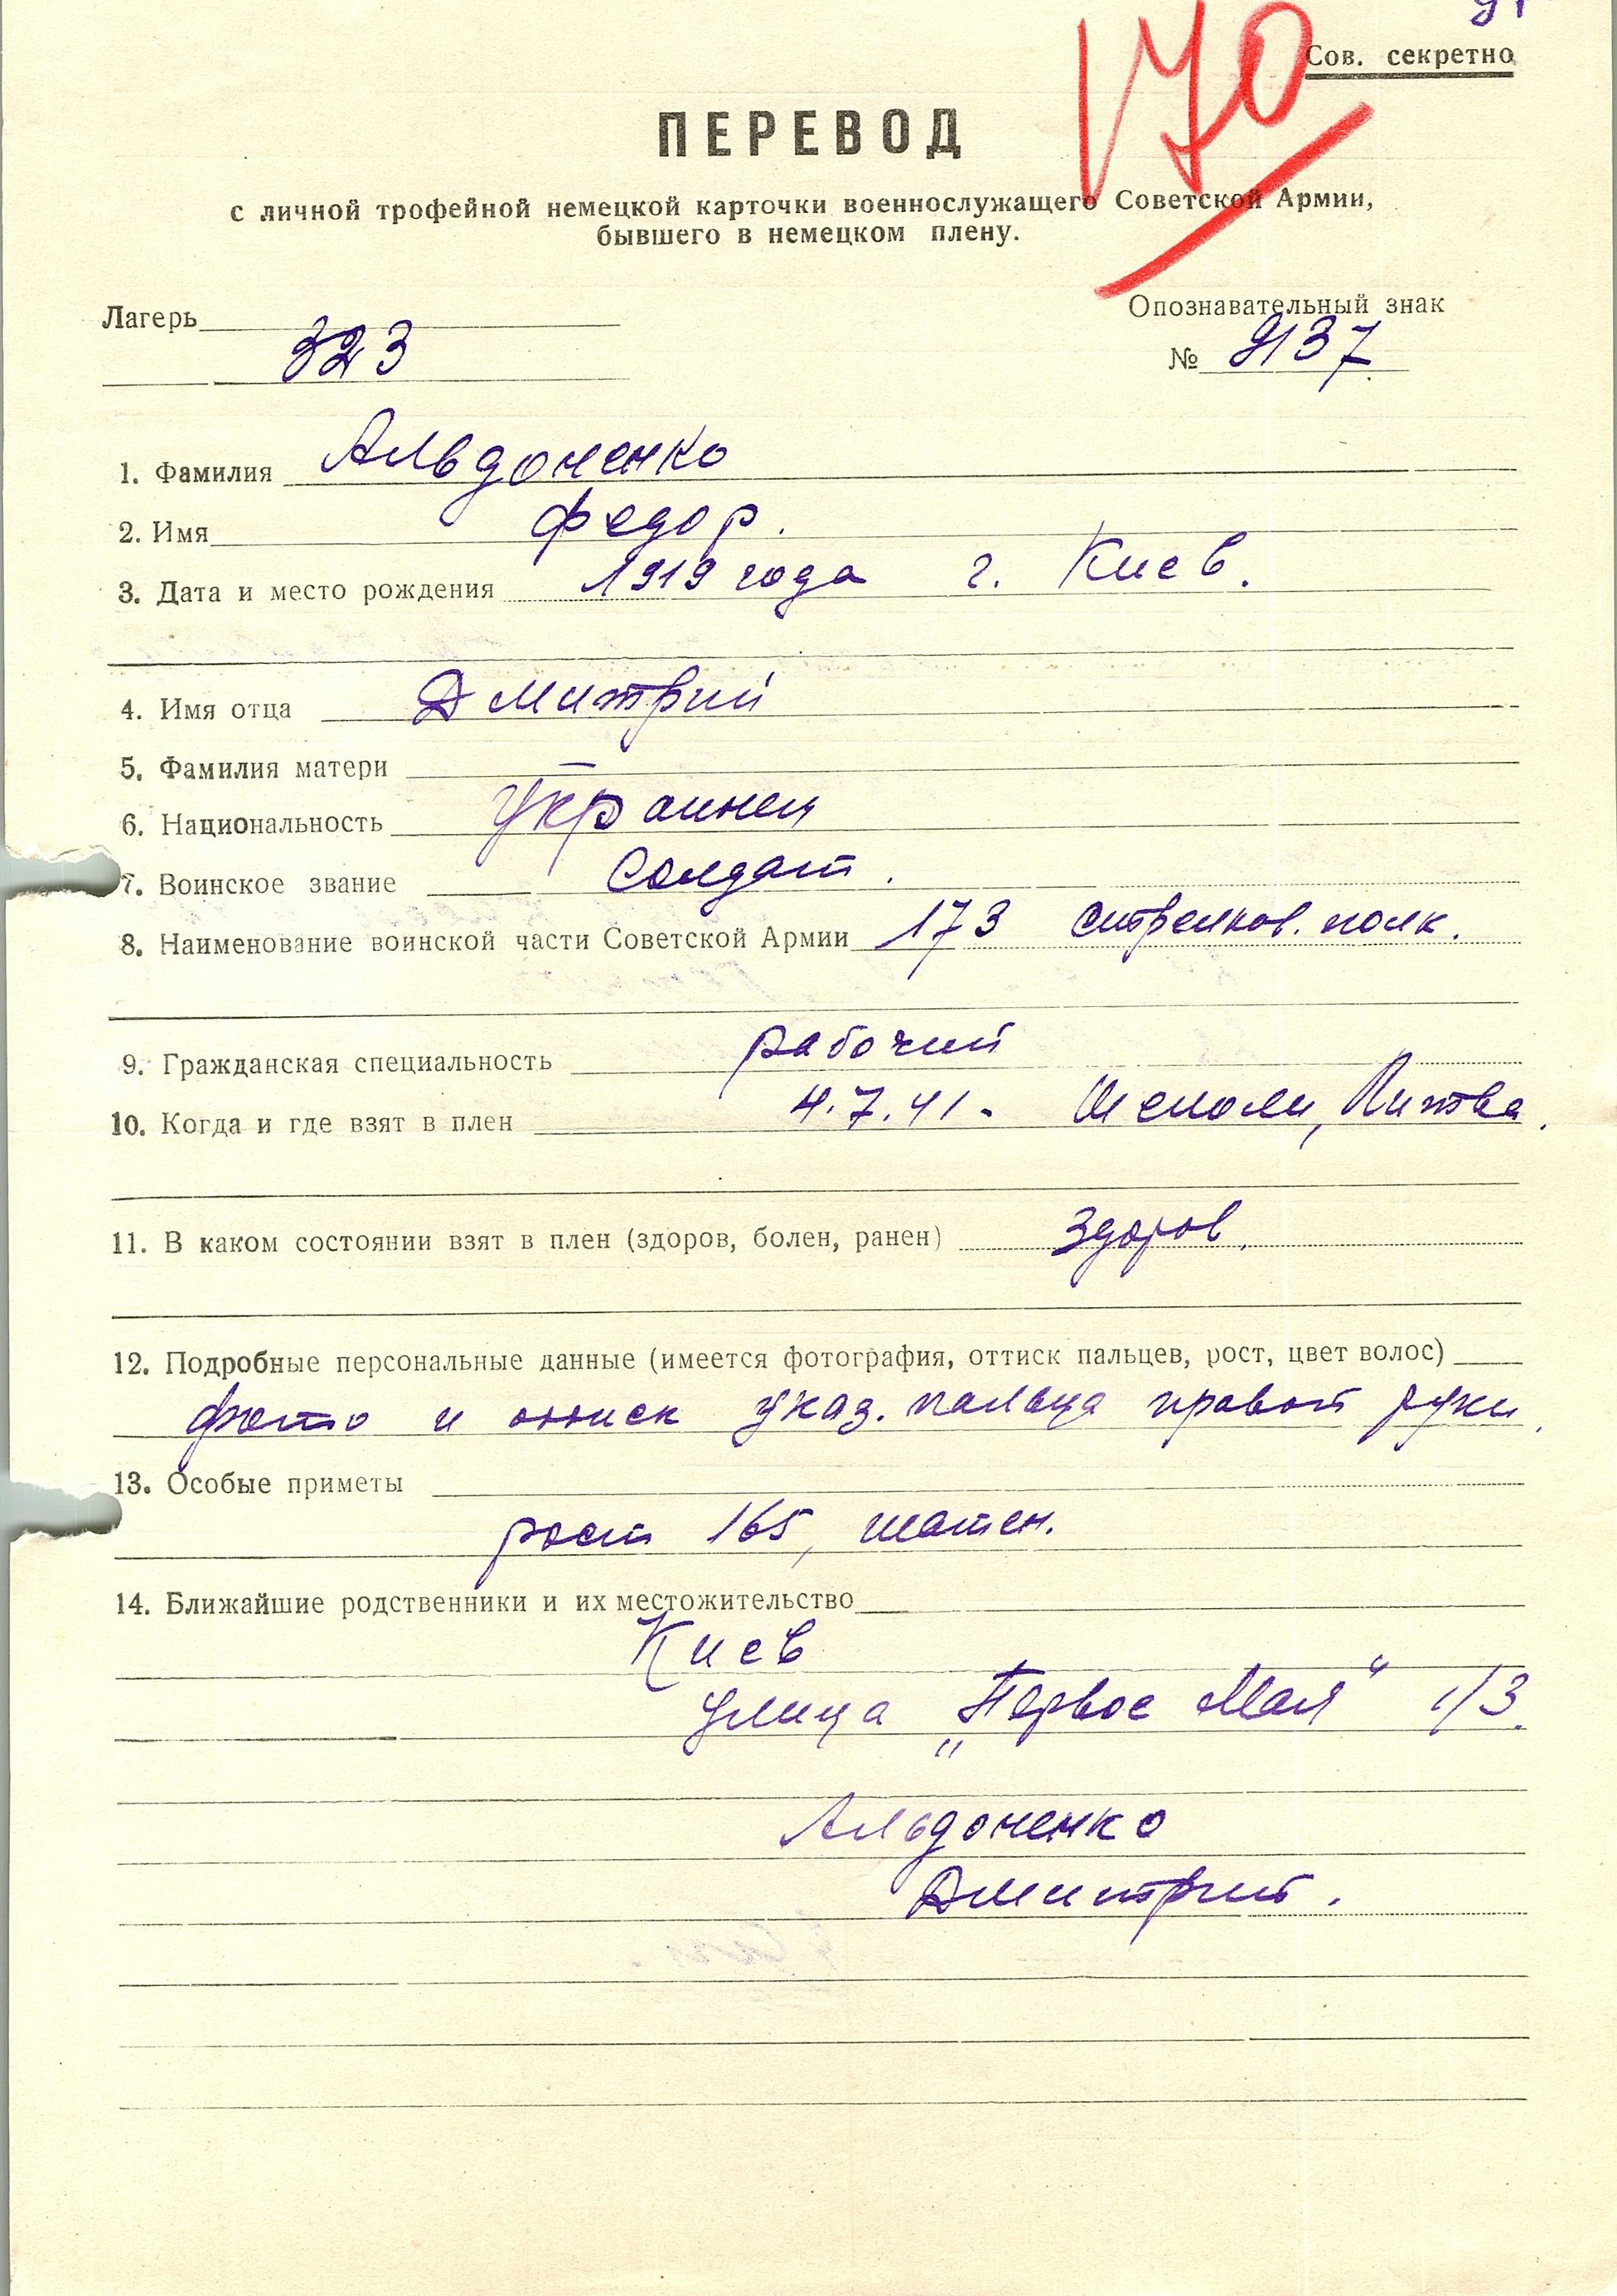 170
Сов. секретно
ПЕРЕВОД
с личной трофейной немецкой карточки военнослужащего Советской Армии,
бывшего в немецком плену.
Лагерь
323
Опознавательный знак
№ 9137
1. Фамилия Альдоненко
2. Имя Федор.
3. Дата и место рождения 1919 года г. Киев.
4. Имя отца Дмитрий
5. Фамилия матери —
6. Национальность Украинец
7. Воинское звание Солдат.
8. Наименование воинской части Советской Армии 173 стрелков. полк.
9. Гражданская специальность рабочий
10. Когда и где взят в плен 4.7.41. Литва.
11. В каком состоянии взят в плен (здоров, болен, ранен) Здоров.
12. Подробные персональные данные (имеется фотография, оттиск пальцев, рост, цвет волос)
фото и оттиск указ. пальца правой руки.
13. Особые приметы
рост 165, шатен.
14. Ближайшие родственники и их местожительство
Киев
улица „Первое Мая“ 1/3.
Альдоненко
Дмитрий.